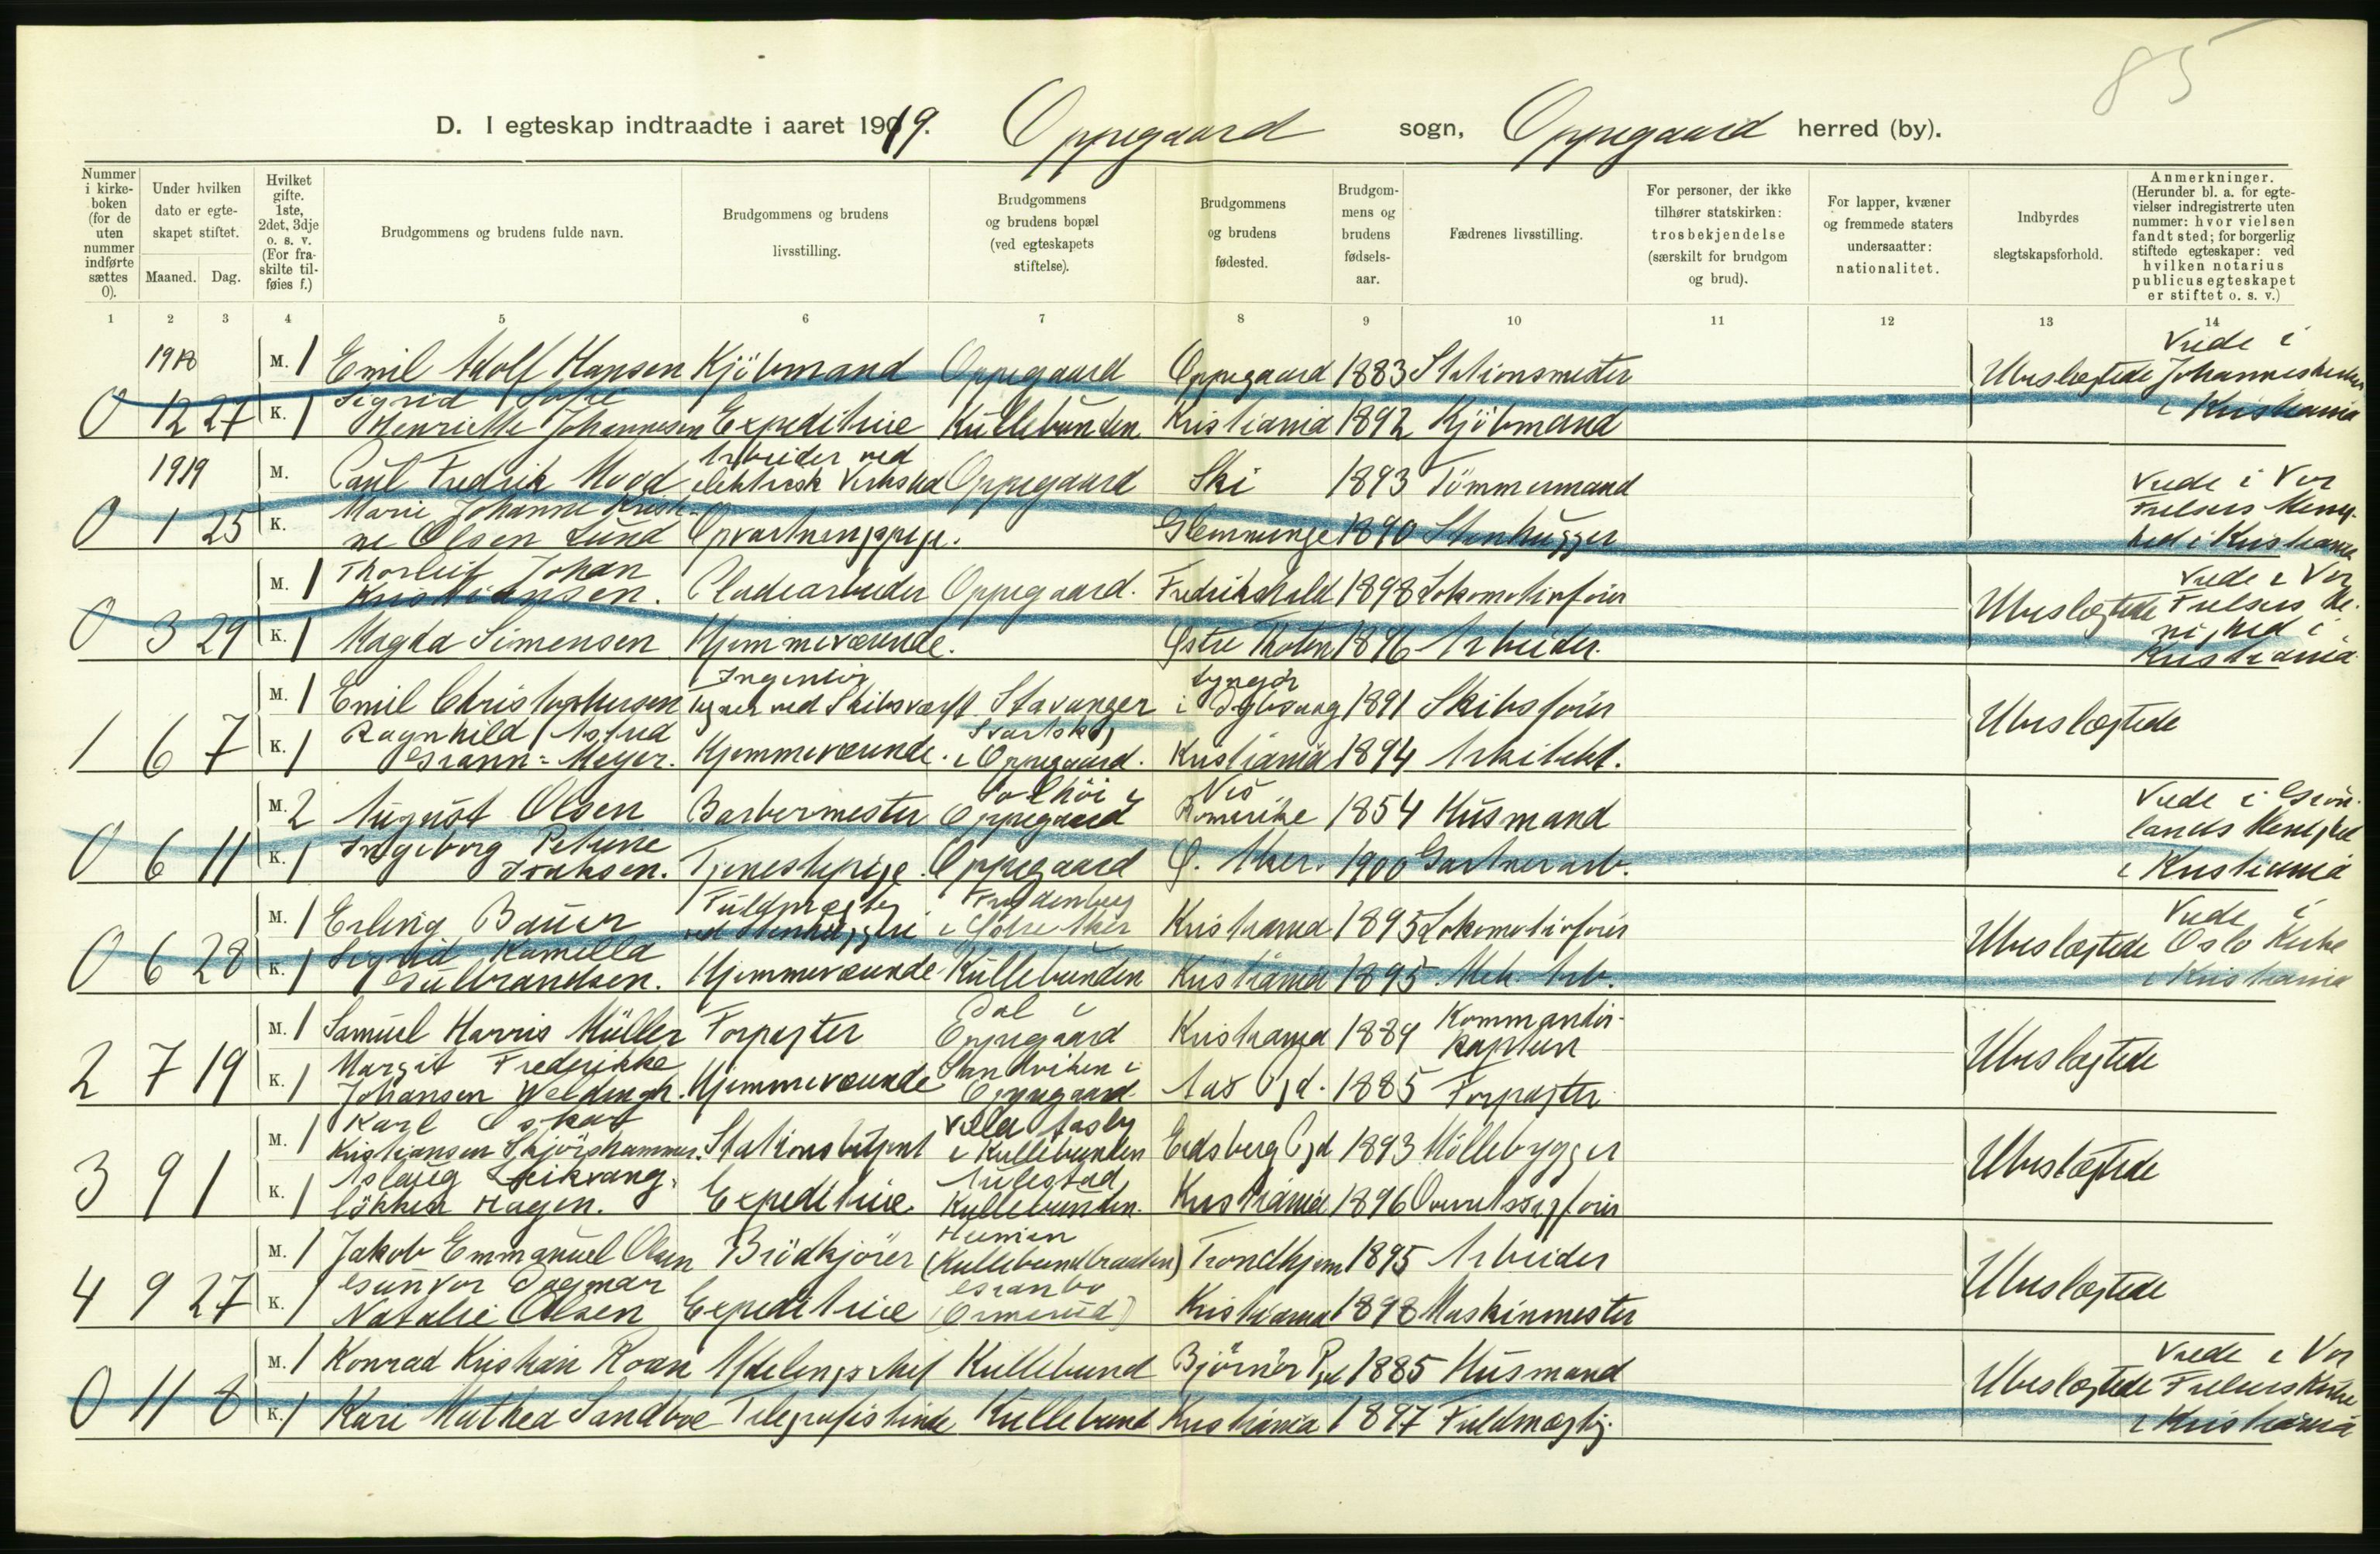 85
D. I egteskap indtraadte i aaret 1919. Oppegaard sogn, Oppegaard herred (by).
Nummer i kirke-boken (for de uten nummer indførte sættes 0).
Under hvilken dato er egte-skapet stiftet.
Maaned. Dag.
Hvilket gifte. 1ste, 2det, 3dje o. s. v. (For fra-skilte til-føies f.)
Brudgommens og brudens fulde navn.
Brudgommens og brudens livsstilling.
Brudgommens og brudens bopæl (ved egteskapets stiftelse).
Brudgommens og brudens fødested.
Brudgom-mens og brudens fødsels-aar.
Fædrenes livsstilling.
For personer, der ikke tilhører statskirken: trosbekjendelse (særskilt for brudgom og brud).
For lapper, kvæner og fremmede staters undersaatter: nationalitet.
Indbyrdes slegtskapsforhold.
Anmerkninger. (Herunder bl. a. for egte-vielser indregistrerte uten nummer: hvor vielsen fandt sted; for borgerlig stiftede egteskaper: ved hvilken notarius publicus egteskapet er stiftet o. s. v.)
1 2 3 4 5 6 7 8 9 10 11 12 13 14
1918 M. 1 Emil Adolf Hansen Kjöbmand Oppegaard Oppegaard 1883 Stationsmester Ubeslægtede Viede i Johanneskirken
0 12 27 K. 1 Sigrid Sofie Henriette Johannesen Expeditrice Kullebunden Kristiania 1892 Kjöbmand i Kristiania
1919 M. Carl Fredrik Mood Arbeider ved elektrisk Verksted Oppegaard Ski 1893 Tömmermand Viede i Vor
0 1 25 K. Marie Johanne Kristine Olsen Lund Opvartningspige. Glemminge 1890 Stenhugger Frelsers Menighed i Kristiania
M. 1 Thorleif Johan Kristiansen. Pladearbeider Oppegaard. Fredrikshald 1898 Lokomotivförer Ubeslægtede Viede i Vor Frelsers Me-
0 3 29 K. 1 Magda Simensen Hjemmeværende. Østre Thoten 1896 Arbeider. nighed i Kristiania
M. 1 Emil Christophersen Ingeniör Tegner ved Skibsværft Stavanger Lyngör i Dybvaag 1891 Skibsförer Ubeslægtede
1 6 7 K. 1 Ragnhild Astrid Grann-Meyer. Hjemmeværende. Svartskog i Oppegaard. Kristiania 1894 Arkitekt.
M. 2 August Olsen Barbermester Solhöi i Oppegaard Nes Romerike 1854 Husmand Viede i Grön-
0 6 11 K. 1 Ingeborg Petrine Isaksen. Tjenestepige. Oppegaard Ø. Aker. 1900 Gartnerarb. lands Menighed i Kristiania
M. 1 Erling Bauer Fuldmægtig ved Stenhuggeri Frydenberg i Østre Aker Kristiania 1895 Lokomotivförer Ubeslægtede Viede i Oslo Kirke
0 6 28 K. 1 Sigrid Kamilla Gulbrandsen. Hjemmeværende Kullebunden Kristiania 1895 Mek. Arb. i Kristiania
M. 1 Samuel Harris Müller Forpagter Dal i Oppegaard Kristiania 1884 Kommandör-kaptein Ubeslægtede
2 7 19 K. 1 Margit Fredrikke Johansen Weldingh. Hjemmeværende Sandviken i Oppegaard Aas Pgd. 1885 Forpagter
M. 1 Karl Oskar Kristiansen Skjörshammer. Stationsbetjent Villa Aasly i Kullebunden Eidsberg Pgd 1893 Möllebygger Ubeslægtede
3 9 1 K. 1 Aslaug Leikvang Lökken Hagen. Expeditrice Aulestad Kullebunden. Kristiania 1896 Overretssagförer
M. 1 Jakob Emmanuel Olsen Brödkjörer Heimen (Kullebundbraaten) Trondhjem 1895 Arbeider Ubeslægtede
4 9 27 K. 1 Gunvor Dagmar Natalie Olsen Expeditrice Granbo (Ormerud) Kristiania 1898 Maskinmester
M. 1 Konrad Kristian Roan Afdelingschef Kullebund Björnör Pgd 1885 Husmand Ubeslægtede Viede i Vor Frelsers Kirke
0 11 8 K. 1 Kari Mathea Sandboe Telegrafistinde Kullebund Kristiania 1897 Fuldmægtig. i Kristiania